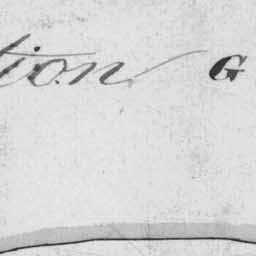 tion G